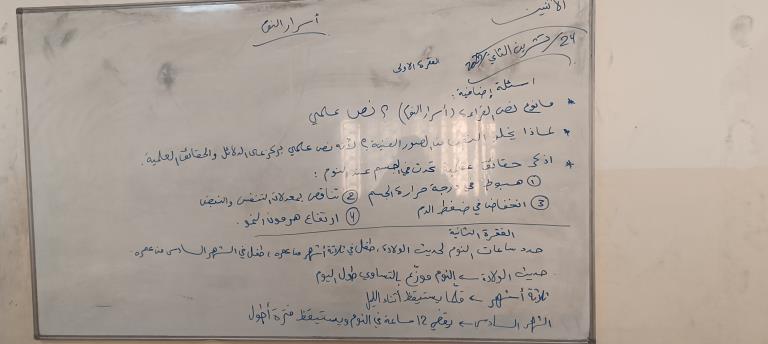 الاثنين
أسرار النوم
24/ تشرين الثاني/
الفقرة الأولى
اسئلة إضافية:
* ما نوع نص القراءة (أسرار النوم) ؟ نص علمي
* لماذا يخلو النص من الصور الفنية ؟ لأنه نص علمي يركز على الدلائل والحقائق العلمية.
* اذكر حقائق علمية تحدث في الجسم عند النوم :
① هبوط في درجة حرارة الجسم ② تناقص بمعدلات التنفس والنبض
③ انخفاض في ضغط الدم ④ ارتفاع هرمون النمو.
الفقرة الثانية
حدد ساعات النوم لحديث الولادة، طفل في ثلاثة أشهر من عمره، طفل في الشهر السادس من عمره.
حديث الولادة ← النوم موزع بالتساوي طول اليوم
ثلاثة أشهر ← قلما يستيقظ أثناء الليل
الشهر السادس ← يقضي 12 ساعة في النوم ويستيقظ فترة أطول